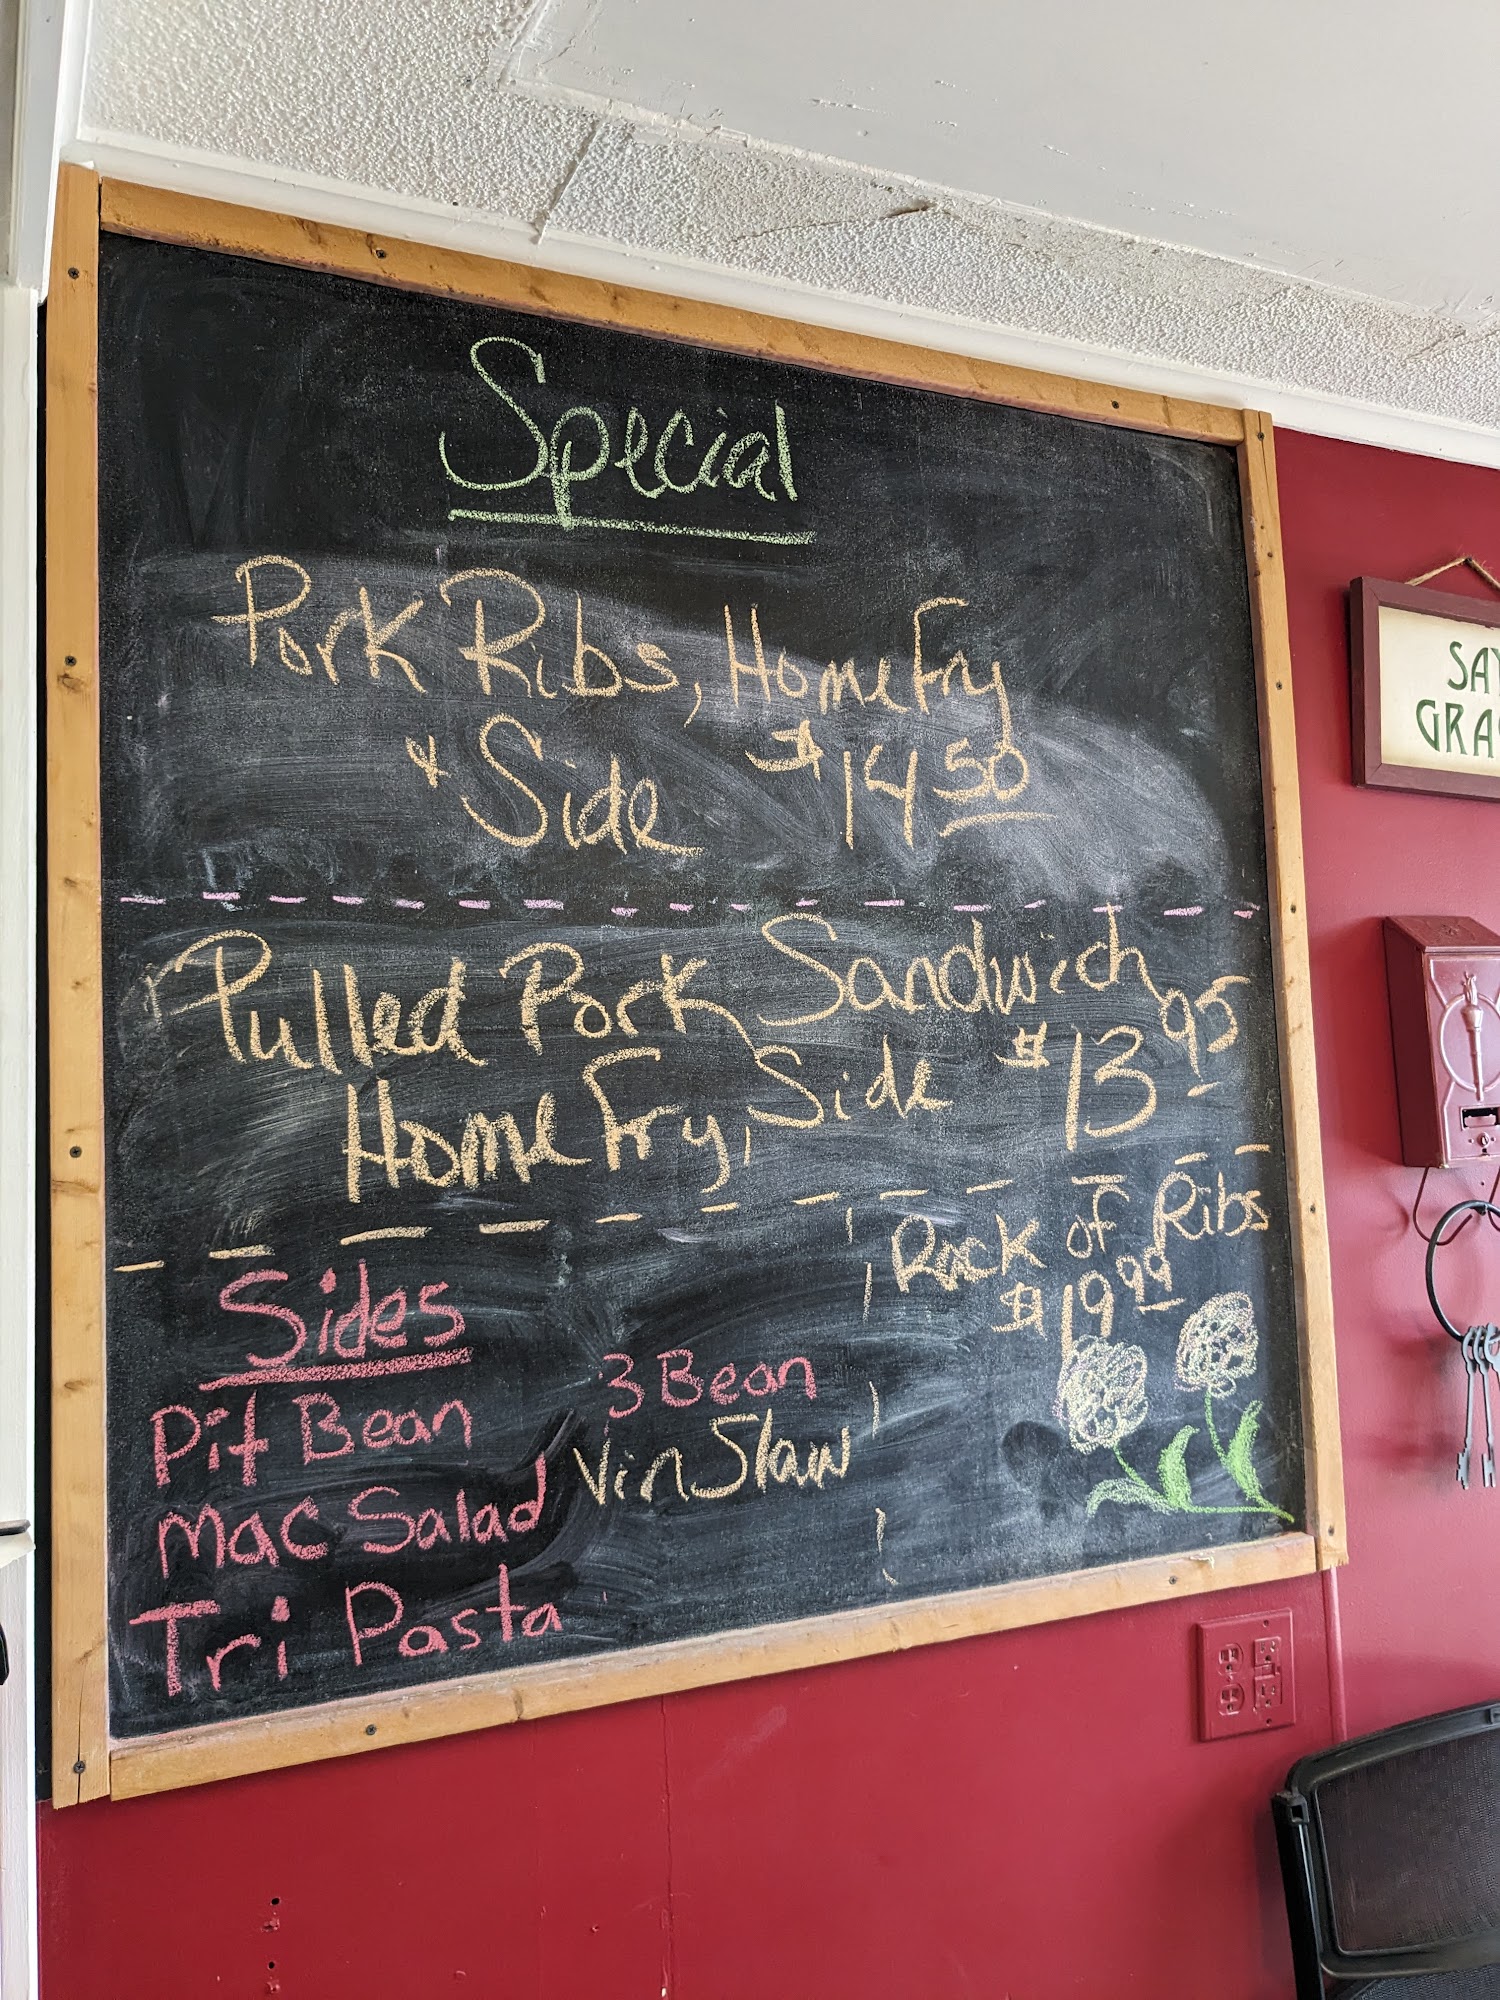 Special
Pork Ribs, Home Fry
& Side $14.50
Pulled Pork Sandwich
Home Fry, Side $13.95
Rack of Ribs
$19.99
Sides
Pit Bean
Mac Salad
Tri Pasta
3 Bean
Vin Slaw
SAY
GRA